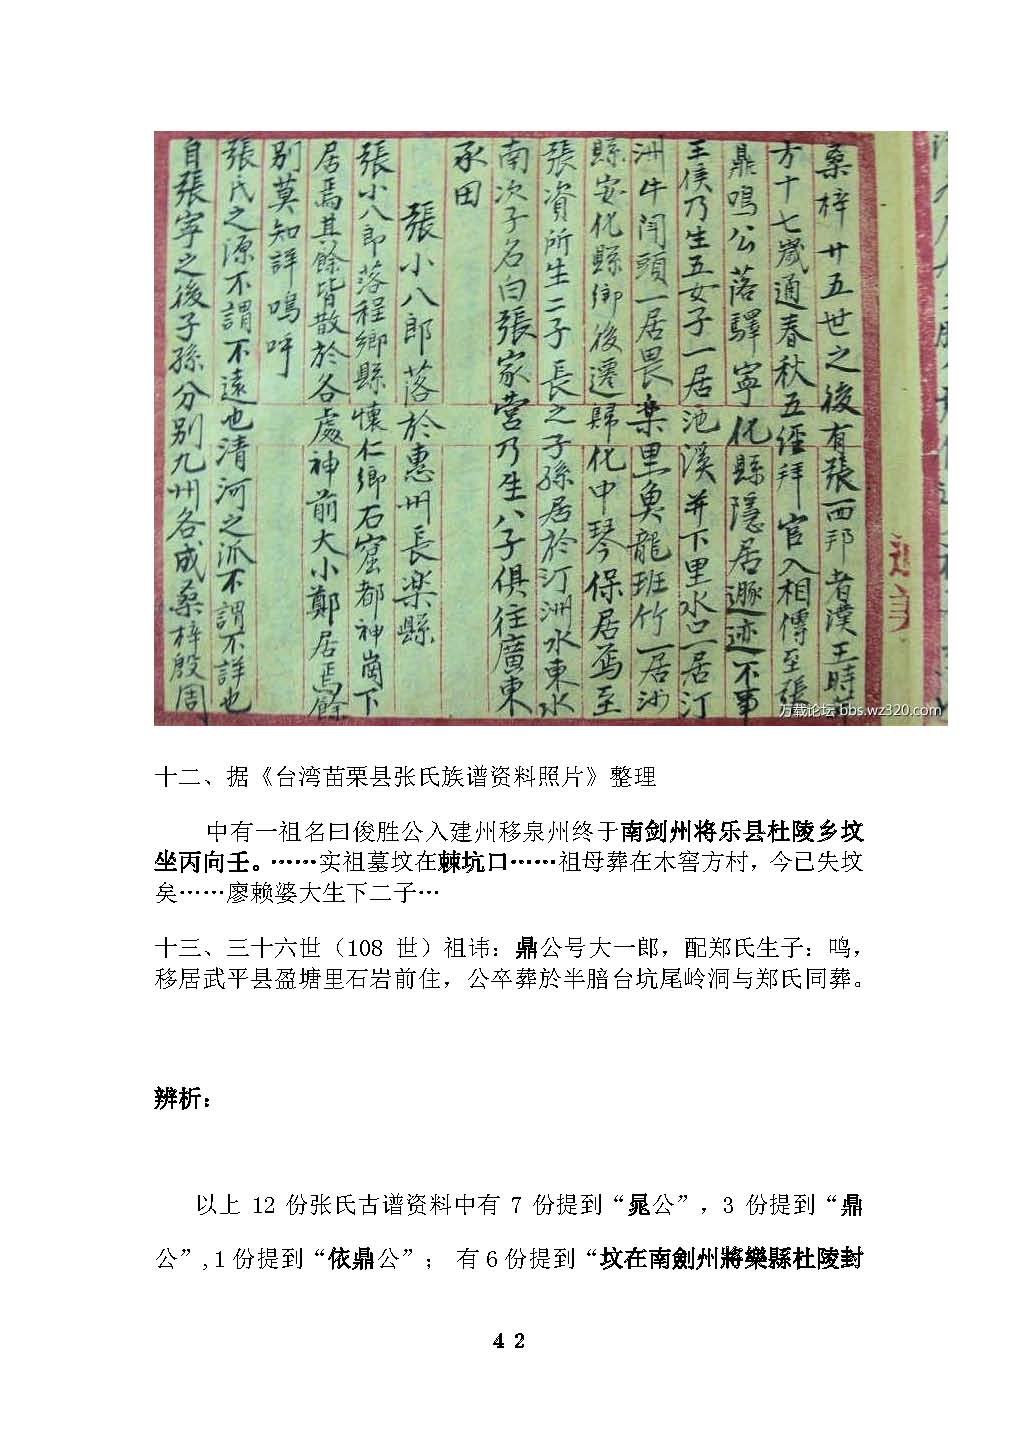 桑梓廿五世之後有張西邦者漢王時
方十七歲通春秋五經拜官入相傳至張
鼎鳴公落驛寧化縣隱居遯迹不事
王侯乃生五女子一居池溪并下里水口一居汀
洲牛閂頭一居畏樂里魚龍班竹一居沙
縣安化縣鄉後遷歸化中琴保居焉至
張資所生二子長之子孫居於汀洲水東水
南次子名白張家營乃生八子俱往廣東
承田
張小八郎落於惠州長楽縣
張小八郎落程鄉縣懷仁鄉石窟都神崗下
居焉其餘皆散於各處神前大小鄭居焉餘
别莫知詳嗚呼
張氏之源不謂不遠也清河之派不謂不詳也
自張寧之後子孫分别九州各成桑梓殷周
万载论坛 bbs.wz320.com
十二、据《台湾苗栗县张氏族谱资料照片》整理
中有一祖名曰俊胜公入建州移泉州终于南剑州将乐县杜陵乡坟
坐丙向壬。……实祖墓坟在棘坑口……祖母葬在木窖方村，今已失坟
矣……廖赖婆大生下二子…
十三、三十六世（108 世）祖讳：鼎公号大一郎，配郑氏生子：鸣，
移居武平县盈塘里石岩前住，公卒葬於半腊台坑尾岭洞与郑氏同葬。
辨析：
以上 12 份张氏古谱资料中有 7 份提到“晁公”，3 份提到“鼎
公”,1 份提到“依鼎公”； 有 6 份提到“坟在南劍州將樂縣杜陵封
42